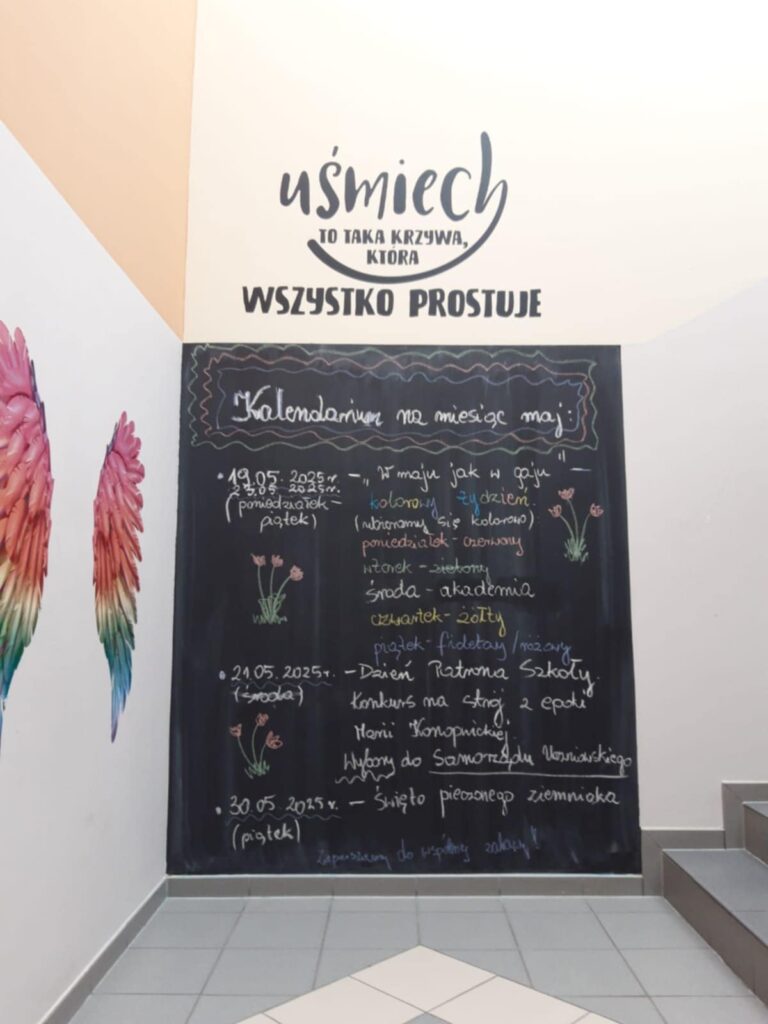 uśmiech
TO TAKA KRZYWA,
KTÓRA
WSZYSTKO PROSTUJE
Kalendarium na miesiąc maj:
• 19.05.2025r. – „W maju jak w gaju" –
23.05.2025r. kolorowy tydzień.
(poniedziałek- (ubieramy się kolorowo)
piątek) poniedziałek - czerwony
wtorek - zielony
środa - akademia
czwartek - żółty
piątek - /różowy
• 21.05.2025r. – Dzień Patrona Szkoły.
(środa) Konkurs na strój z epoki
Marii Konopnickiej.
Wybory do Samorządu Uczniowskiego
• 30.05.2025r. – Święto pieczonego ziemniaka
(piątek)
Zapraszamy do wspólnej zabawy!